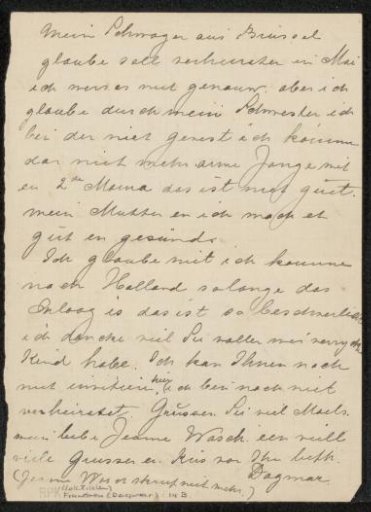 Mein Schwager aus Brüssel
glaube soll verheirater in Mai
ich weis es nut genauw, aber ich
glaube durch mein Schwester ich
bei der niet gewest ich komme
dar niet mehr arme Jonge mit
en 2te Mama das ist nut gut.
mein Mutter en ich mach et
gut en gesund.
Ich glaube nit ich komme
nach Holland solange das
Oorlog is das ist so beschwerlich
ich dencke viel Sie wollen
Kind habe. Ich kan Ihnen noch
nut invitieren hier, ich bei noch nit
verheiratet. Grüssen Sie viel Mals
mein liebe Jeanne Wasch een viell
viele Grüssen en Kus von Ihr liebh.
Dagmar
(Jeanne Was er skreeft niet mehr.)